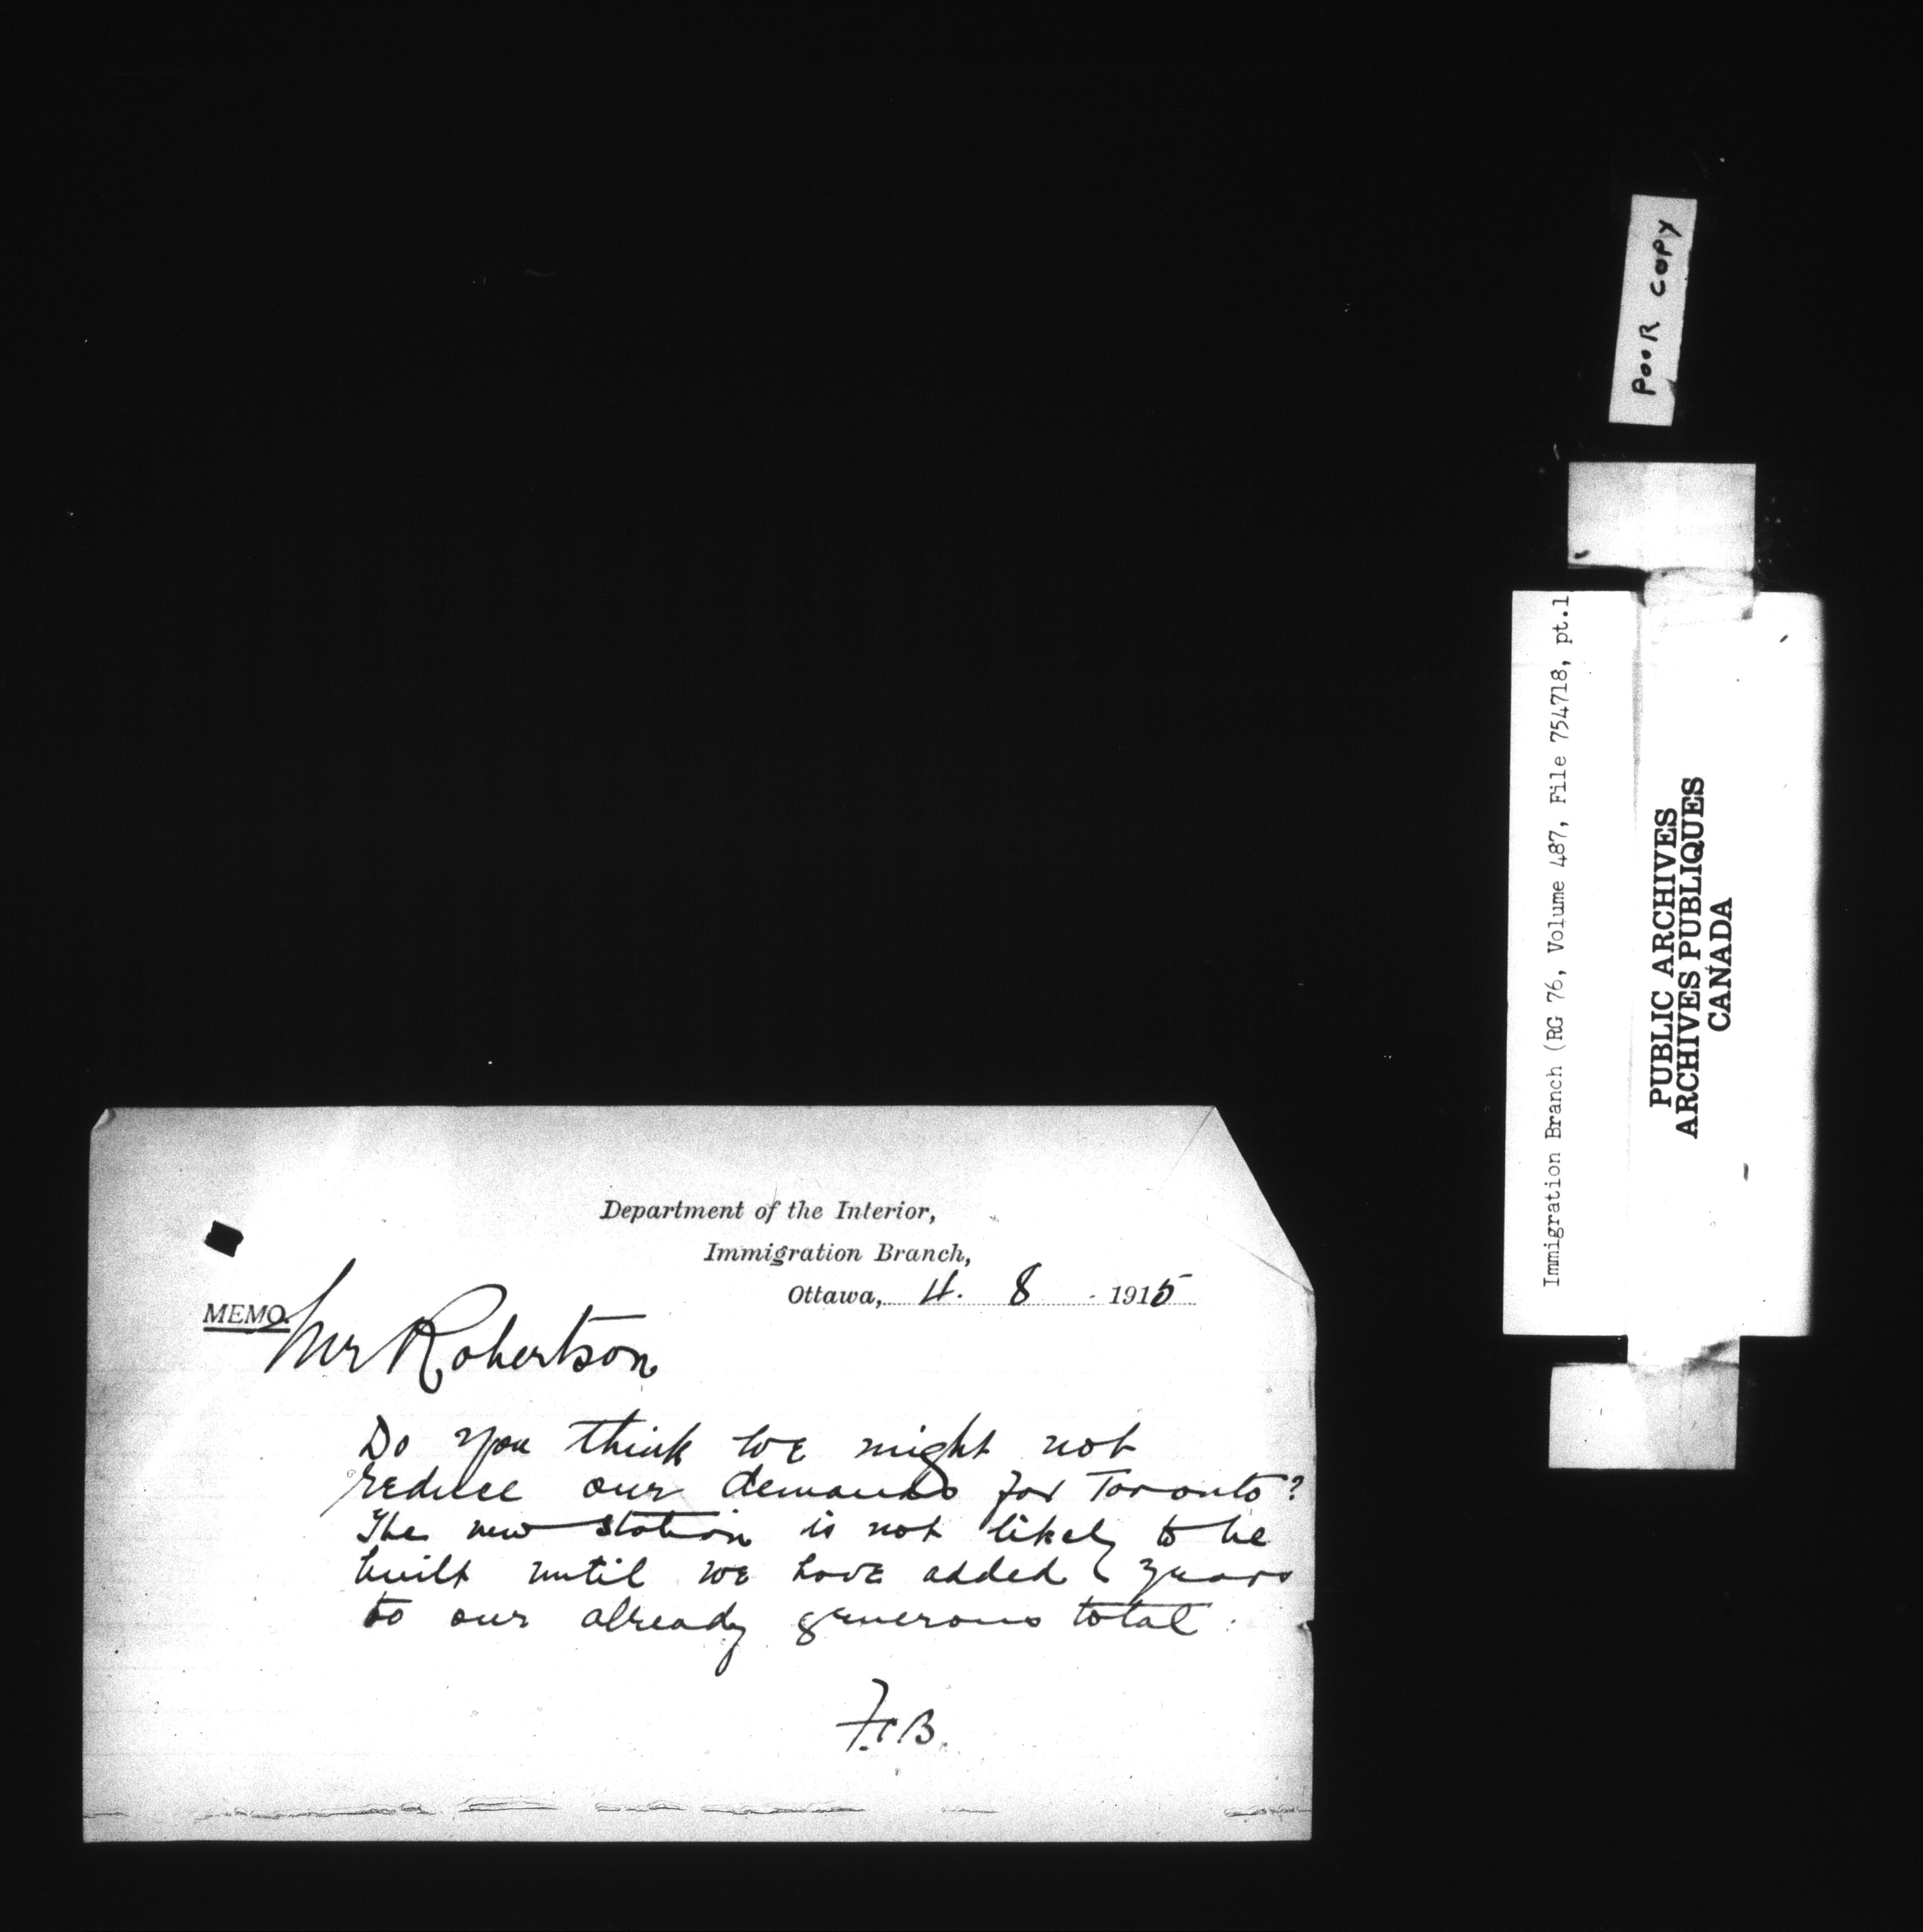 POOR COPY
Immigration Branch (RG 76, Volume 487, File 754718, pt.1
PUBLIC ARCHIVES
ARCHIVES PUBLIQUES
CANADA
Department of the Interior,
Immigration Branch,
Ottawa, 4. 8 1915
MEMO.
Mr Robertson
Do you think we might not
reduce our demands for Toronto?
The new station is not likely to be
built until we have added years
to our already generous total.
F.C.B.